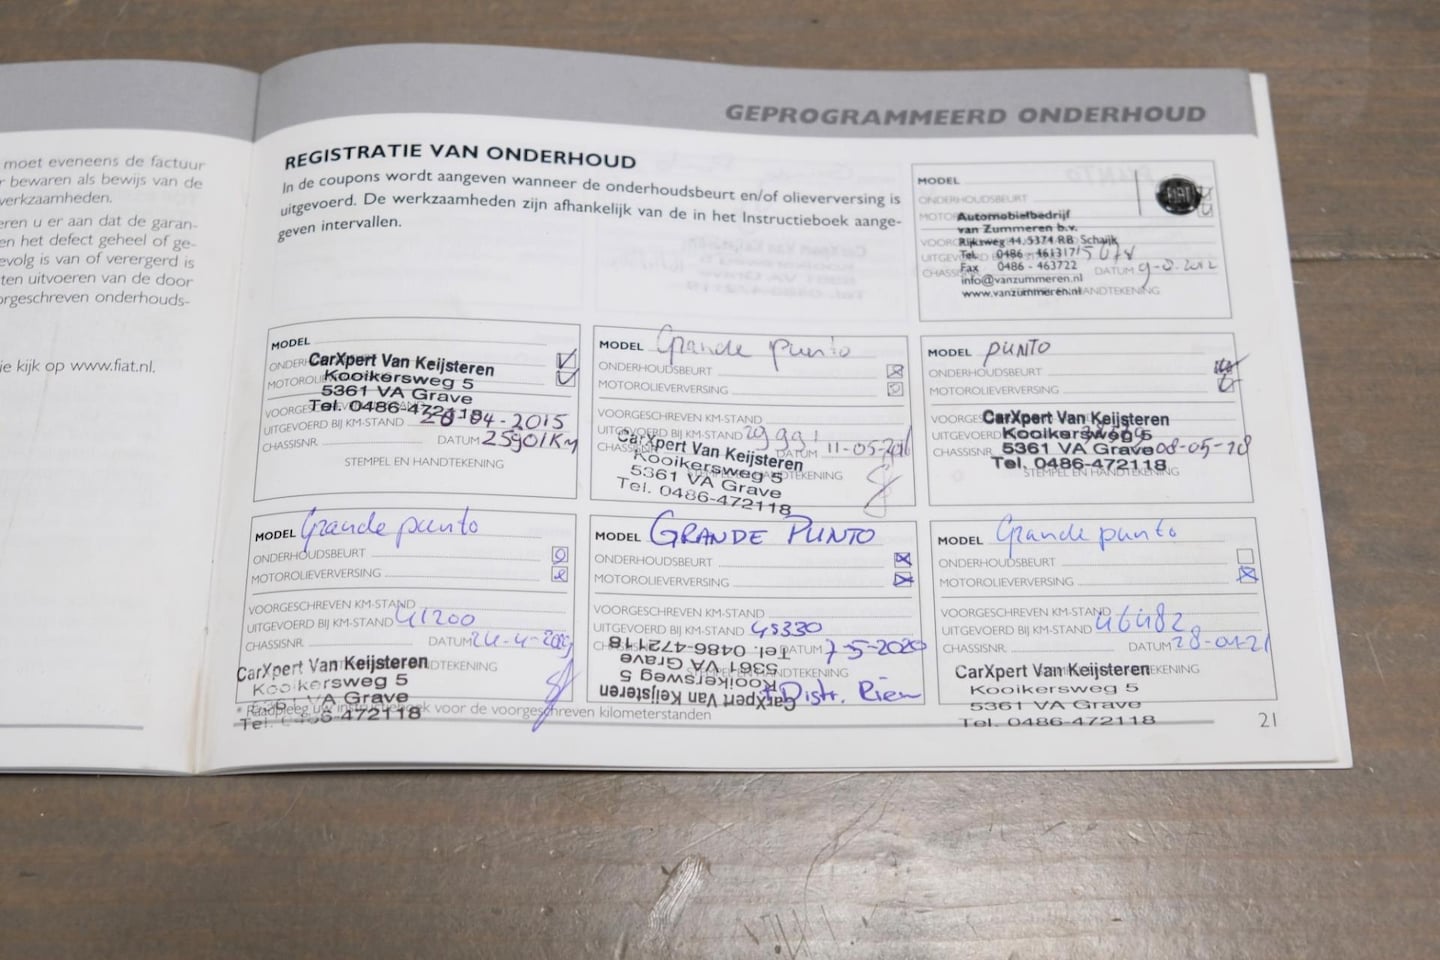 moet eveneens de factuur
bewaren als bewijs van de
werkzaamheden.
eren u er aan dat de garan-
en het defect geheel of ge-
evolg is van of verergerd is
ten uitvoeren van de door
orgeschreven onderhouds-
ie kijk op www.fiat.nl.
GEPROGRAMMEERD ONDERHOUD
REGISTRATIE VAN ONDERHOUD
In de coupons wordt aangeven wanneer de onderhoudsbeurt en/of olieverversing is
uitgevoerd. De werkzaamheden zijn afhankelijk van de in het Instructieboek aange-
geven intervallen.
MODEL
FIAT
ONDERHOUDSBEURT
Automobielbedrijf
van Zummeren b.v.
Rijksweg 44, 5374 RB Schaijk
Tel. 0486 - 461317
Fax 0486 - 463722
DATUM
info@vanzummeren.nl
www.vanzummeren.nl
HANDTEKENING
MODEL
CarXpert Van Keijsteren
Kooikersweg 5
5361 VA Grave
Tel. 0486-472118
UITGEVOERD BIJ KM-STAND 28-04-2015
CHASSISNR. DATUM 25901KM
STEMPEL EN HANDTEKENING
MODEL Grande punto
ONDERHOUDSBEURT
MOTOROLIEVERVERSING
VOORGESCHREVEN KM-STAND
UITGEVOERD BIJ KM-STAND
DATUM 11-05-2016
CarXpert Van Keijsteren
Kooikersweg 5
5361 VA Grave
Tel. 0486-472118
MODEL PUNTO
ONDERHOUDSBEURT
MOTOROLIEVERVERSING
CarXpert Van Keijsteren
Kooikersweg 5
CHASSISNR. 5361 VA Grave 08-05-18
Tel. 0486-472118
STEMPEL EN HANDTEKENING
MODEL Grande punto
ONDERHOUDSBEURT
MOTOROLIEVERVERSING
VOORGESCHREVEN KM-STAND
UITGEVOERD BIJ KM-STAND 41200
CHASSISNR. DATUM 24-4-2019
CarXpert Van Keijsteren
HANDTEKENING
Kooikersweg 5
5361 VA Grave
Tel. 0486-472118
MODEL GRANDE PUNTO
ONDERHOUDSBEURT
MOTOROLIEVERVERSING
VOORGESCHREVEN KM-STAND
UITGEVOERD BIJ KM-STAND 45330
DATUM 7-5-2020
Tel. 0486-472118
5361 VA Grave
Kooikersweg 5
CarXpert Van Keijsteren
+ Distr. Riem
MODEL Grande punto
ONDERHOUDSBEURT
MOTOROLIEVERVERSING
VOORGESCHREVEN KM-STAND
UITGEVOERD BIJ KM-STAND 46482
CHASSISNR. DATUM 28-04-21
CarXpert Van Keijsteren
Kooikersweg 5
5361 VA Grave
Tel. 0486-472118
* Raadpleeg uw instructieboek voor de voorgeschreven kilometerstanden
21